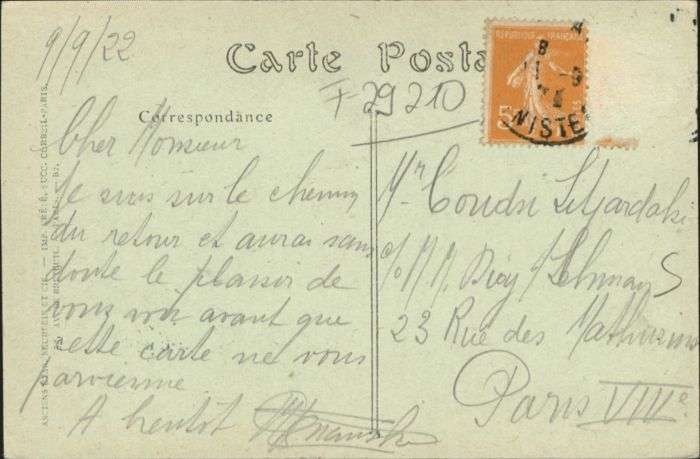 9/9/22
Carte Posta
RÉPUBLIQUE FRANÇAISE
5
NISTE
F 29210
Correspondance
Cher Monsieur
Je suis sur le chemin
du retour et aurai sans
doute le plaisir de
vous voir avant que
cette carte ne vous
parvienne
A bientot
Mr
c/o M M.
23 Rue des Mathurins
Paris VIIIe